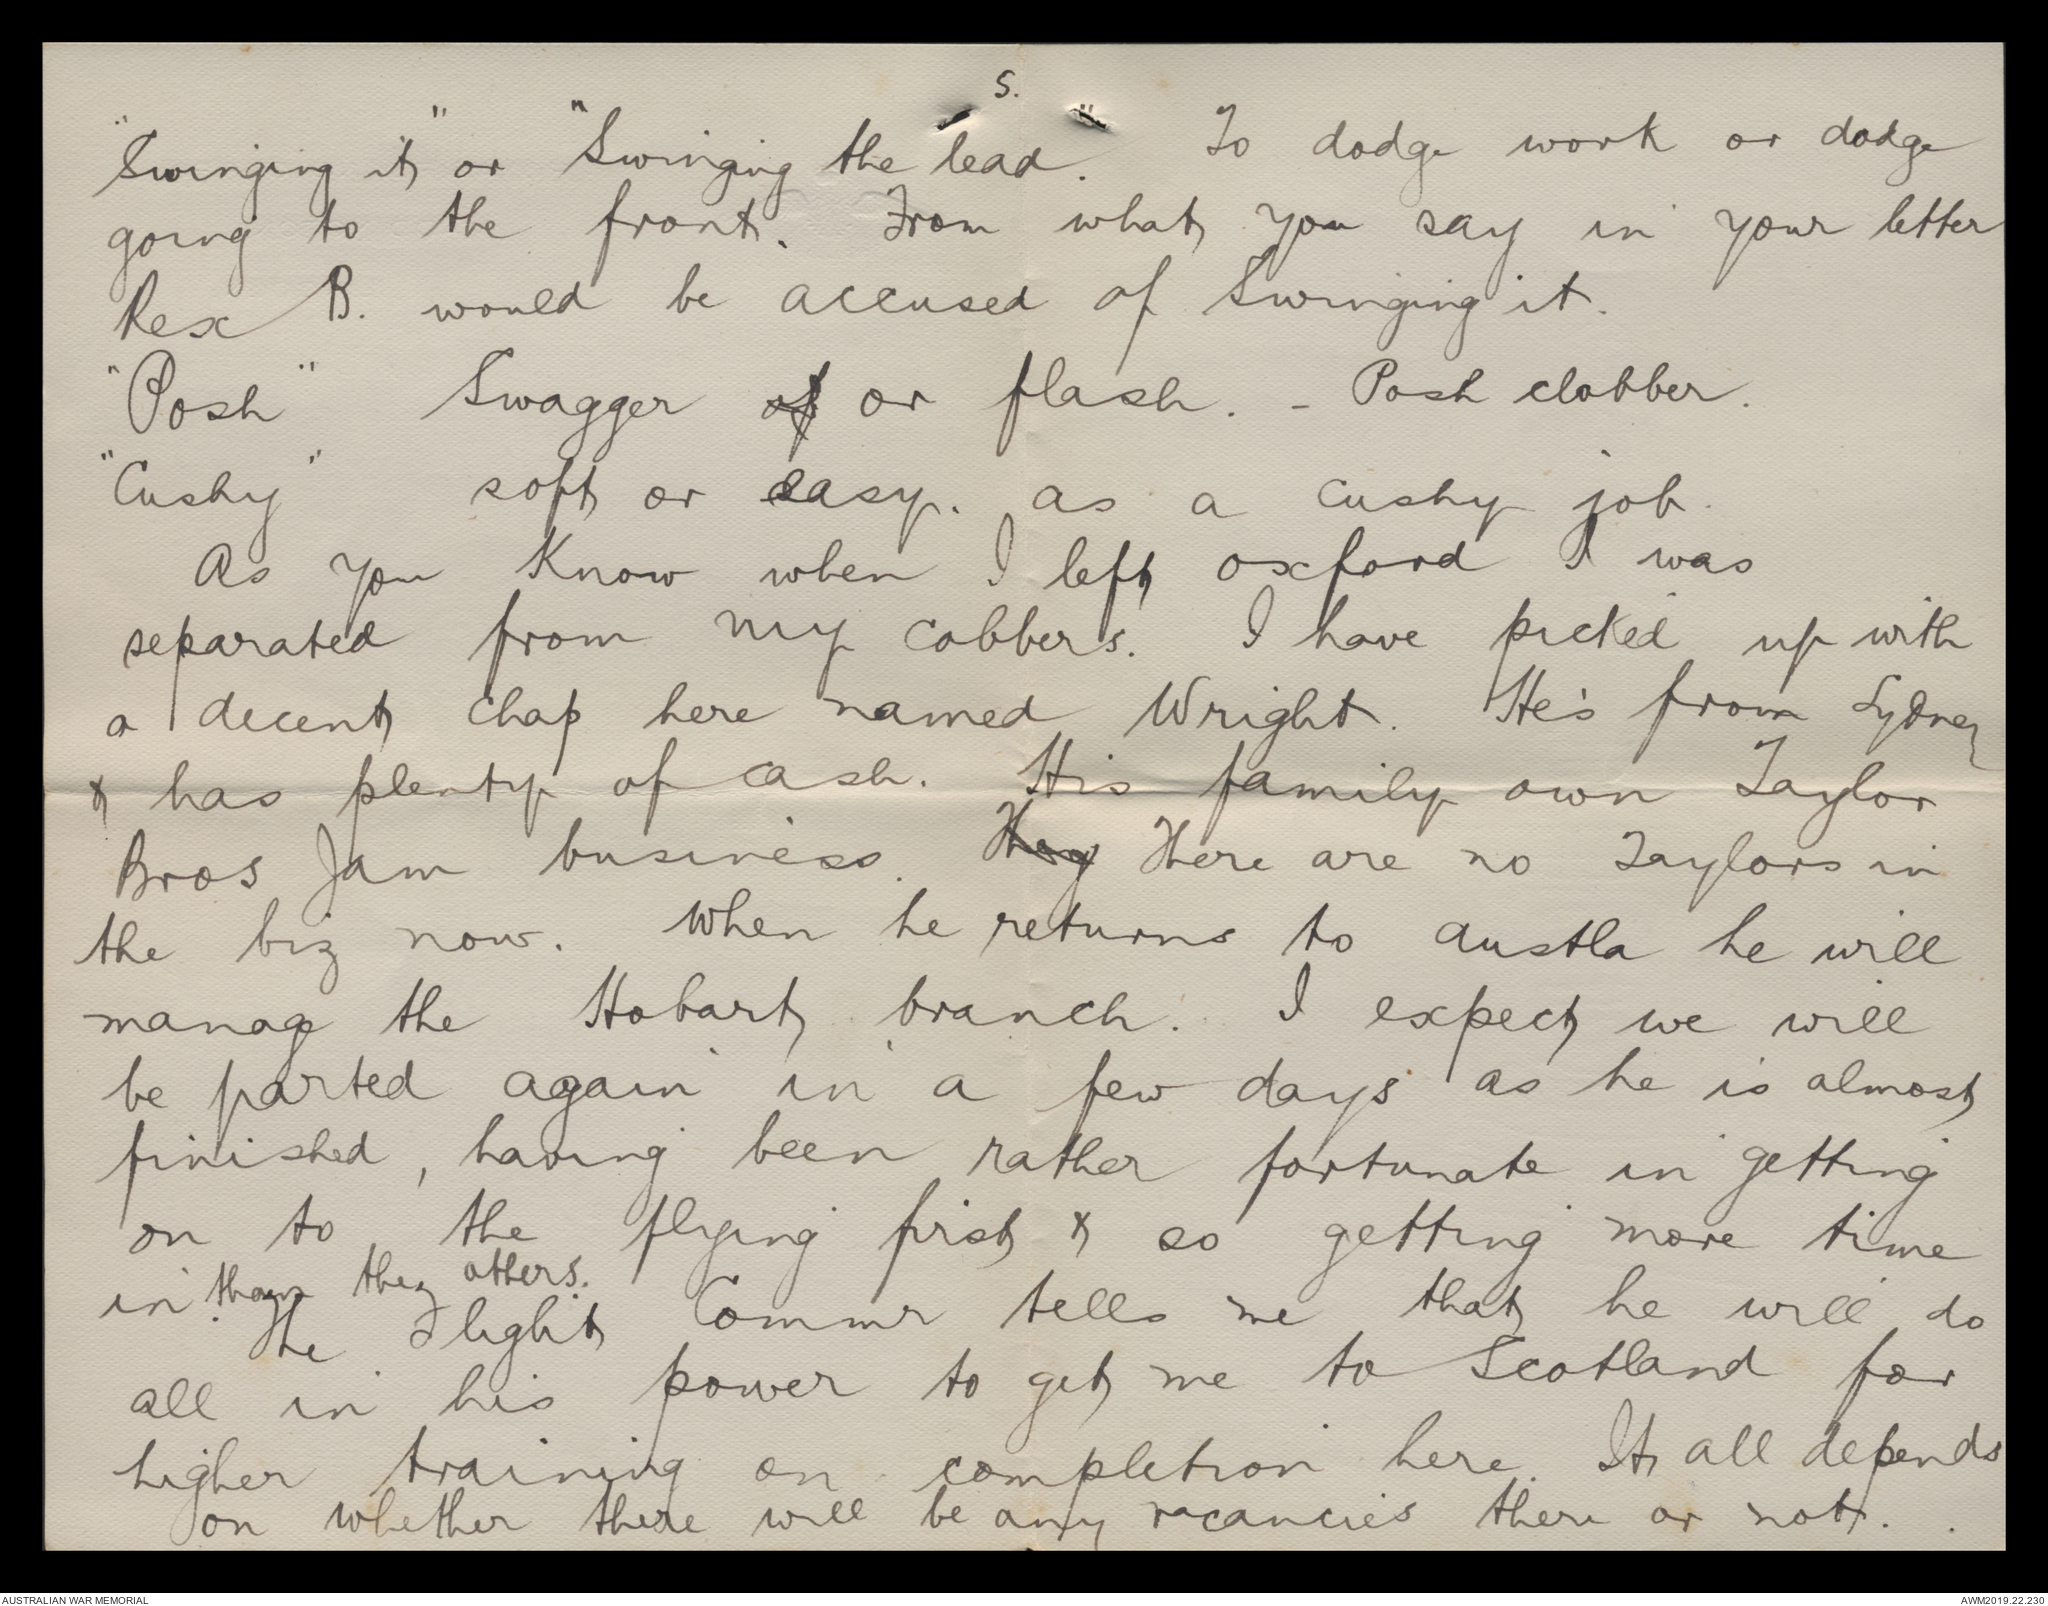 5.
"Swinging it" or "Swinging the lead." To dodge work or dodge
going to the front. From what you say in your letter
Rex B. would be accused of Swinging it.
"Posh" Swagger of or flash. - Posh clobber.
"Cushy" soft or easy. as a cushy job.
As you know when I left Oxford I was
separated from my cobbers. I have picked up with
a decent chap here named Wright. He's from Sydney
& has plenty of cash. His family own Taylor
Bros Jam business. They There are no Taylors in
the biz now. When he returns to Austla he will
manage the Hobart branch. I expect we will
be parted again in a few days as he is almost
finished, having been rather fortunate in getting
on to the flying first & so getting more time
in than the others.
The Flight Commr tells me that he will do
all in his power to get me to Scotland for
higher training on completion here. It all depends
on whether there will be any vacancies there or not.
AUSTRALIAN WAR MEMORIAL
AWM2019.22.230